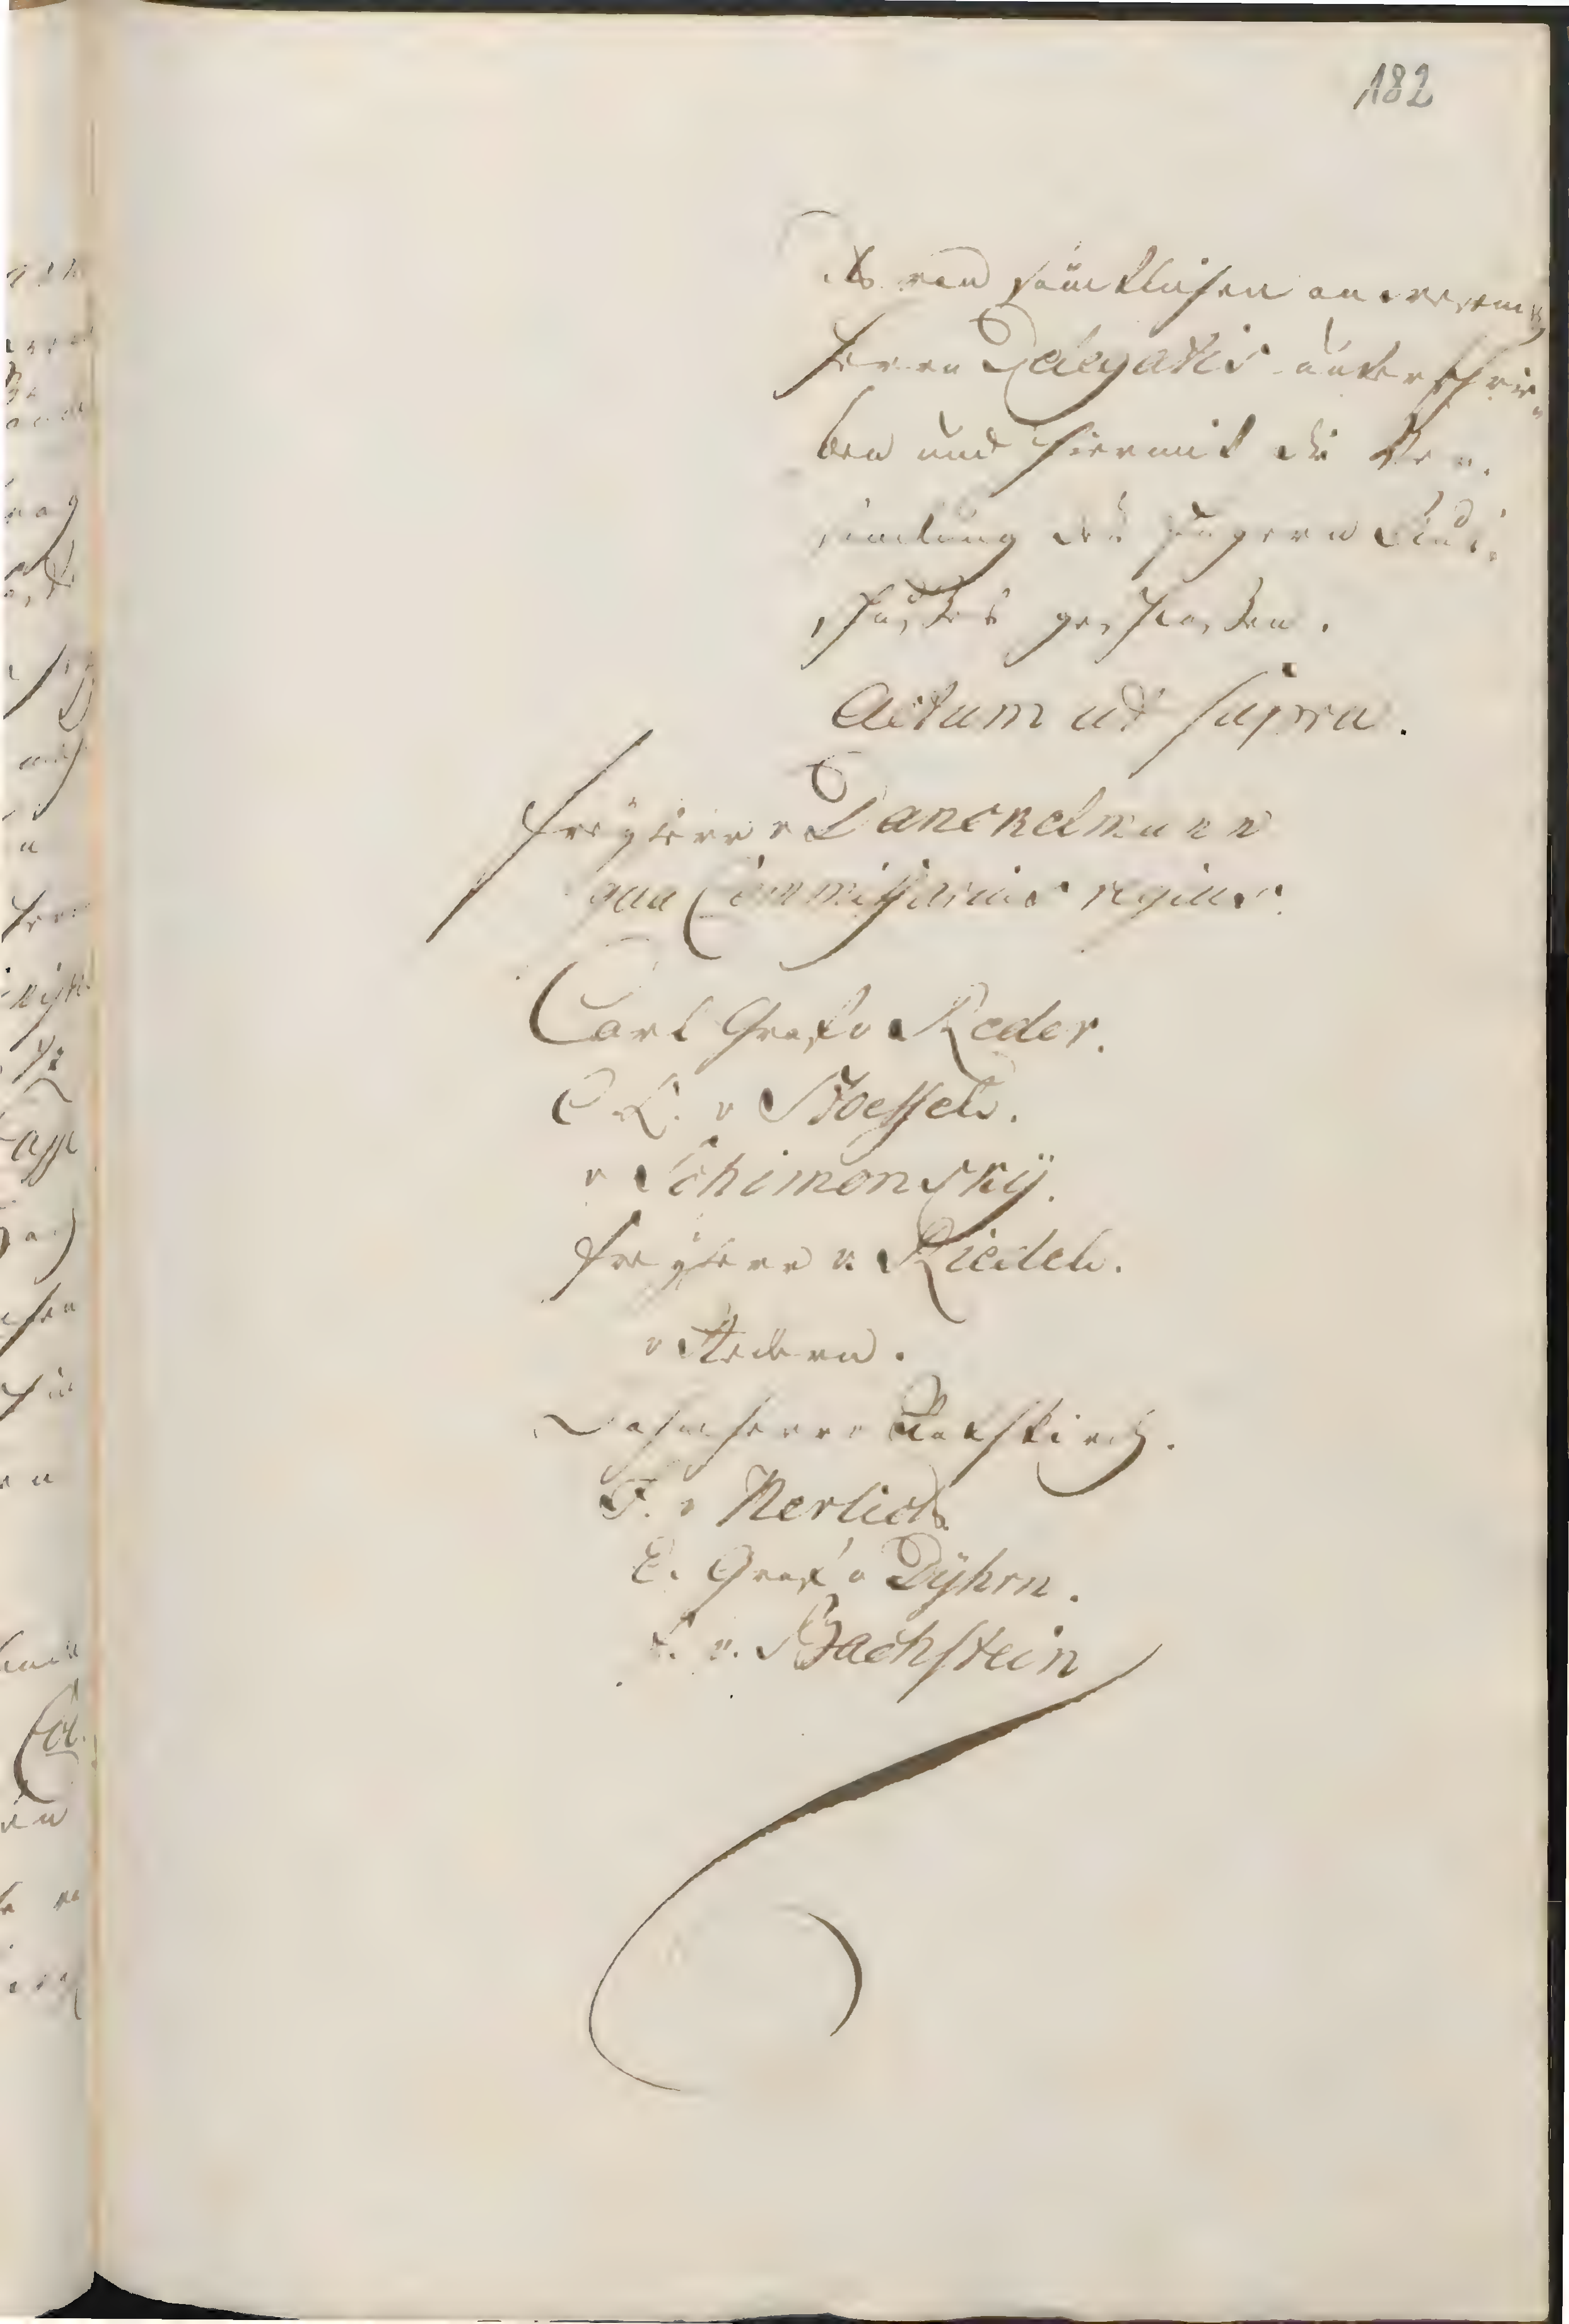 182
es von sämtlichen anwesenden
Herrn Delegatis unterschrie-
ben und hiermit die Ver-
samlung des Engern Aus-
schußes geschloßen.
Actum ut supra.
Freyherr v Danckelmann
qua Commissarius regius.
Carl Graf v Reder.
C L. v Stoessel.
v Schimonsky.
Freyherr v. Riedel.
v Aedern.
Domherr v Rothkirch.
F. v Nerlich
E. Graf v Dyhrn.
v. Bachstein